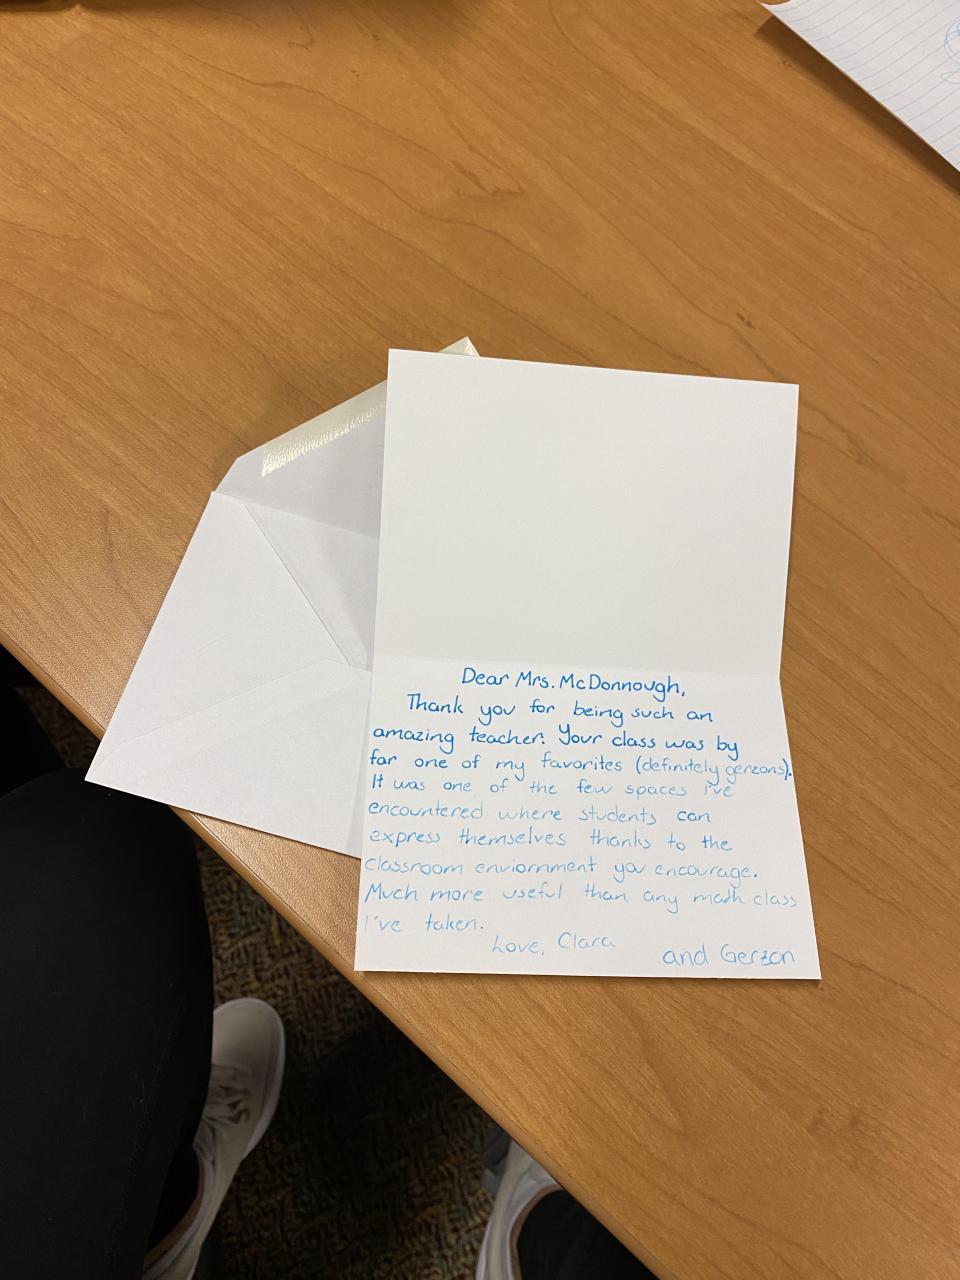 Dear Mrs. McDonnough,
Thank you for being such an
amazing teacher. Your class was by
far one of my favorites (definitely gerzons).
It was one of the few spaces I've
encountered where students can
express themselves thanks to the
classroom enviornment you encourage.
Much more useful than any math class
I've taken.
Love, Clara and Gerzon